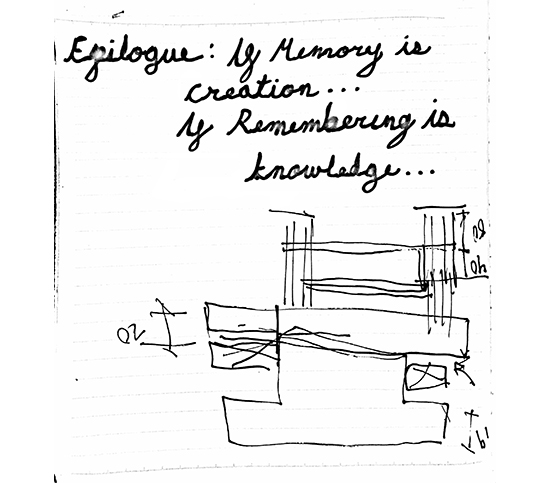 Epilogue: If Memory is
creation...
If Remembering is
knowledge...